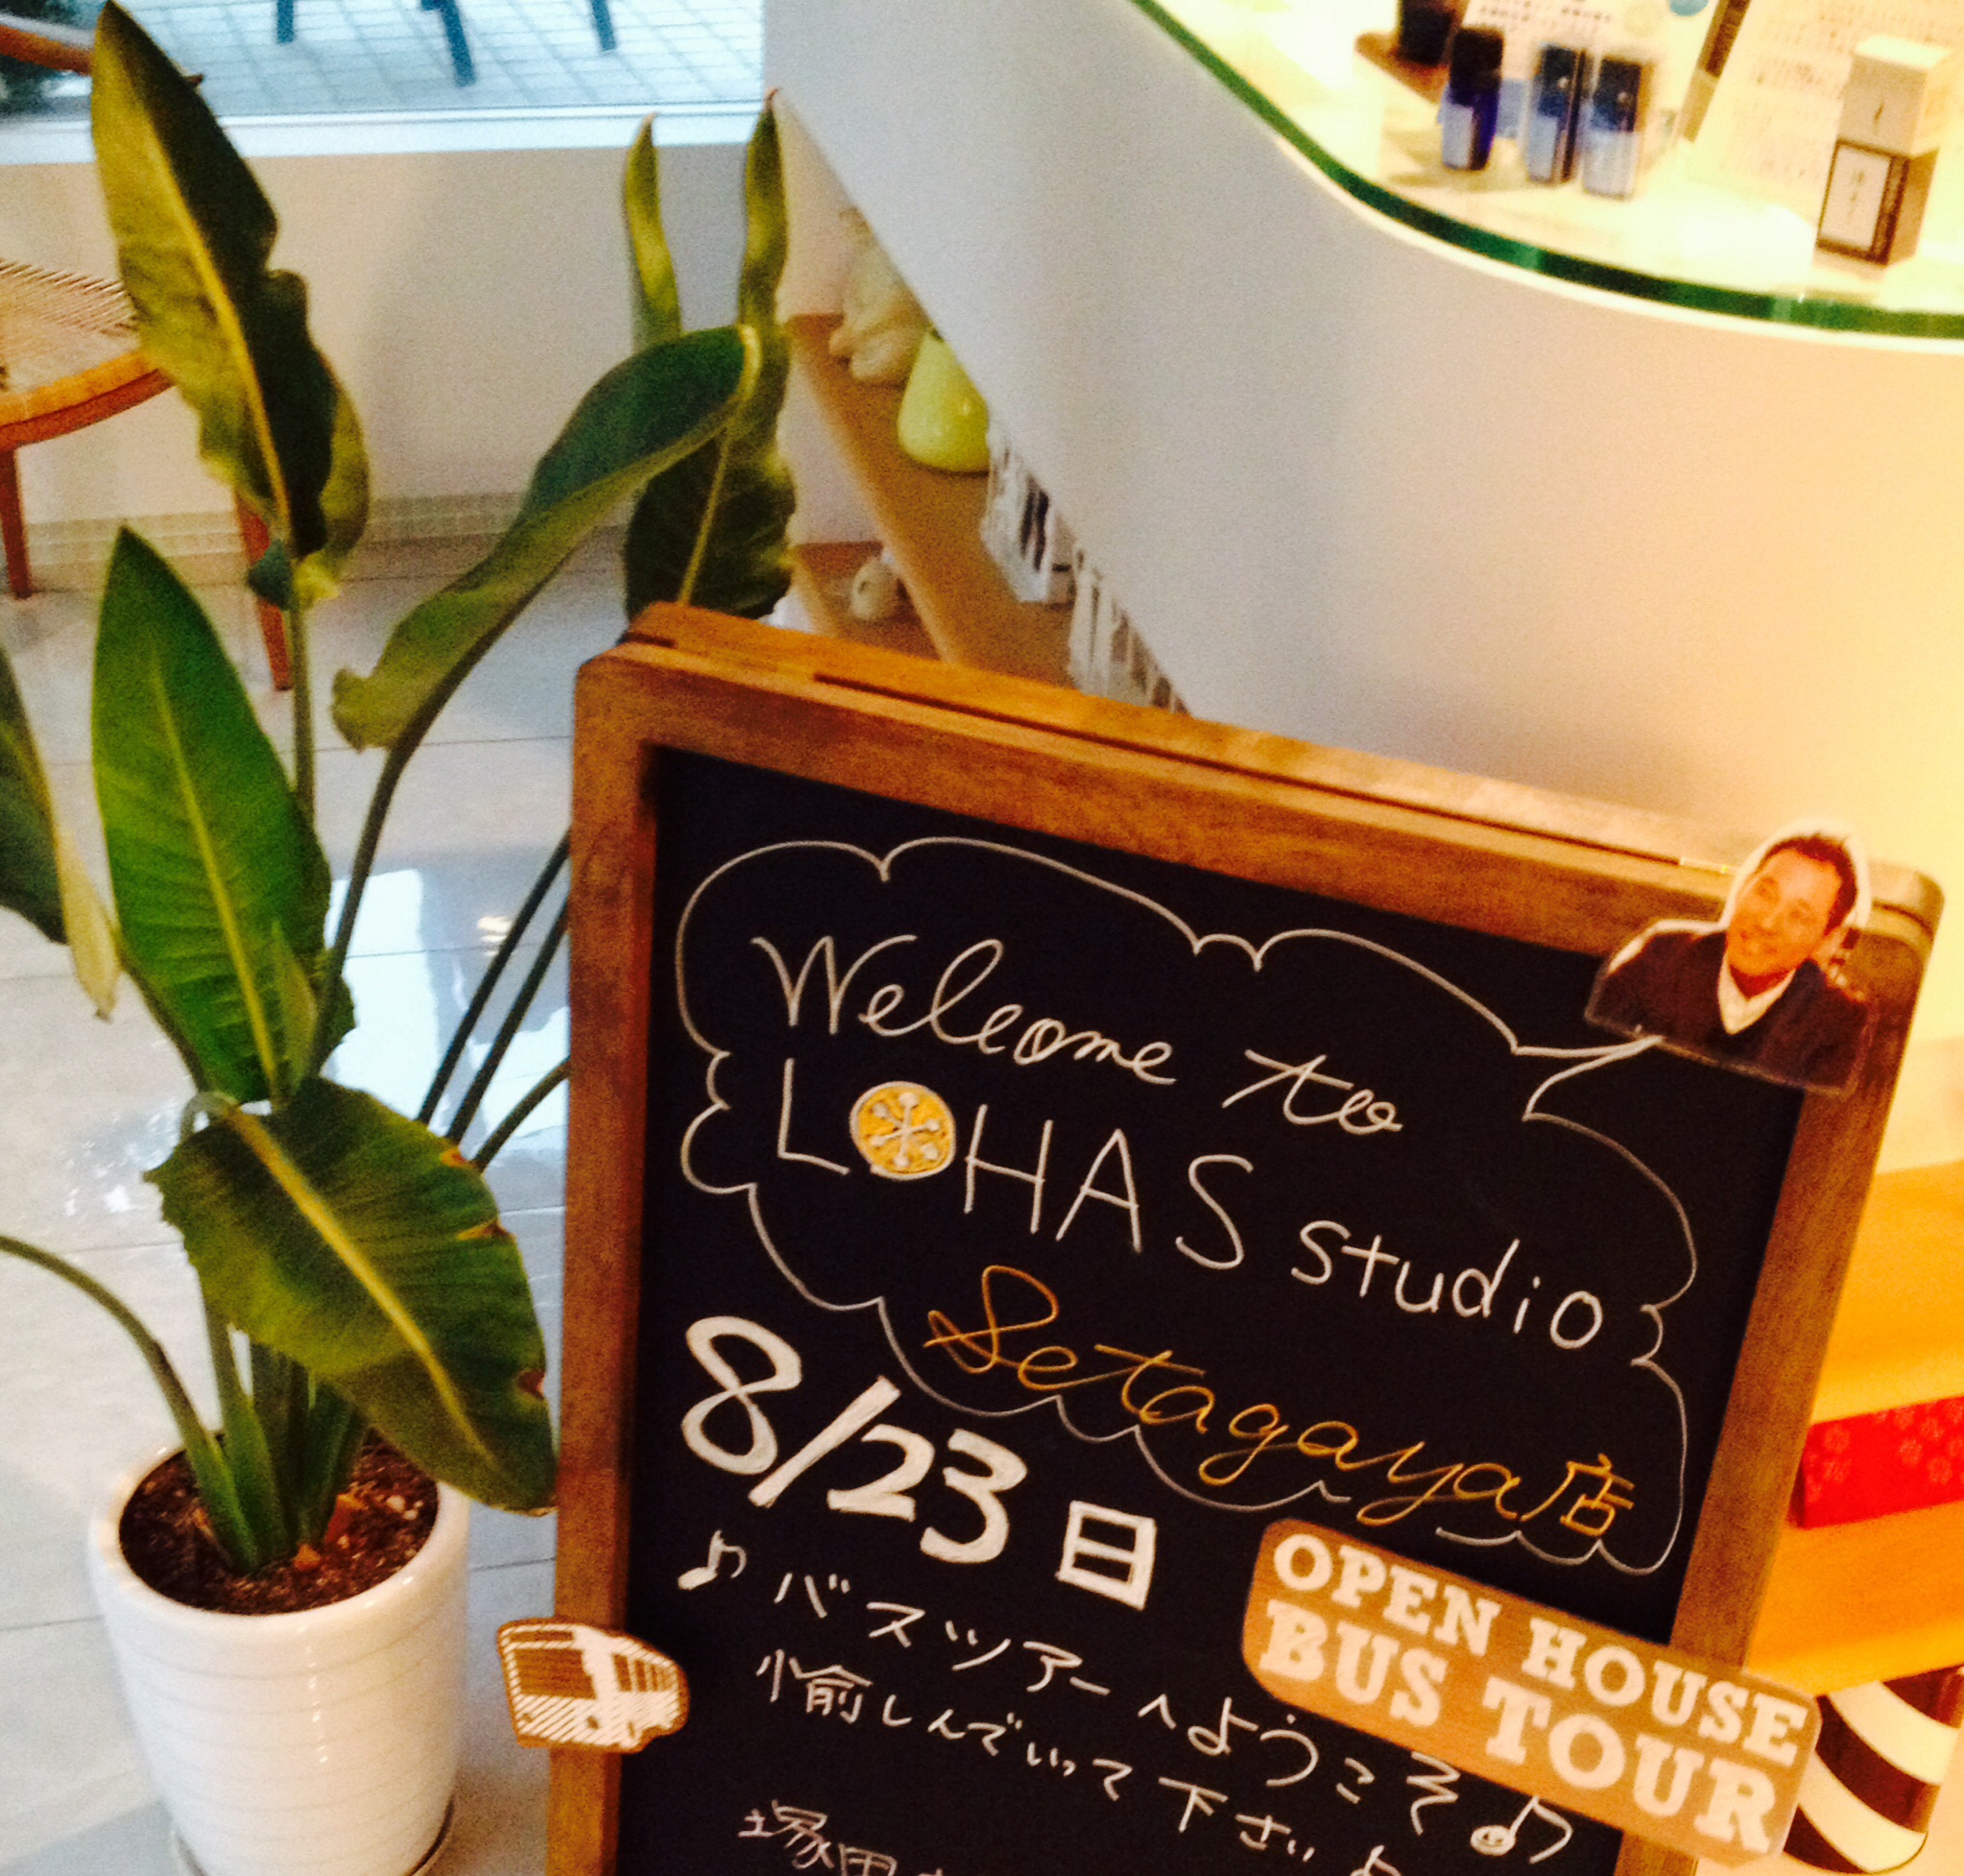 Welcome to
LOHAS studio
Setagaya店
8/23 日
♪ バスツアーへようこそ♪
愉しんでいって下さい♪
塚田
OPEN HOUSE
BUS TOUR